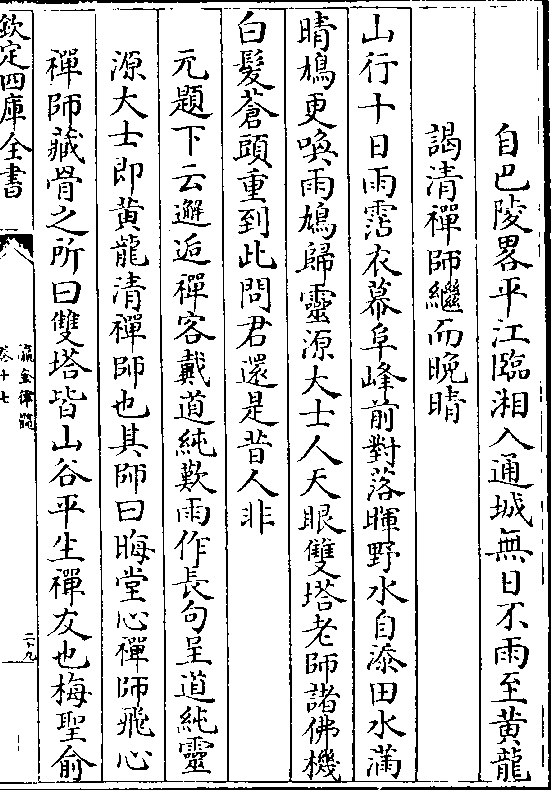 自巴陵畧平江臨湘入通城無日不雨至黃龍
謁清禪師繼而晚晴
山行十日雨霑衣幕阜峰前對落暉野水自添田水滿
晴鳩更喚雨鳩歸靈源大士人天眼雙塔老師諸佛機
白髮蒼頭重到此問君還是昔人非
元題下云邂逅禪客戴道純歎雨作長句呈道純靈
源大士即黃龍清禪師也其師曰晦堂心禪師飛心
禪師藏骨之所曰雙塔皆山谷平生禪友也梅聖俞
欽定四庫全書
瀛奎律髓
卷十七
二十九